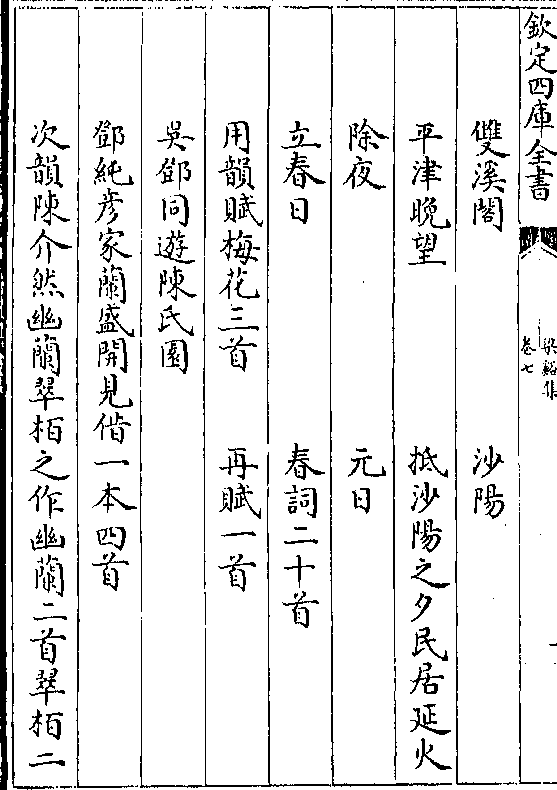 欽定四庫全書
梁谿集
卷七
雙溪閣　沙陽
平津晚望　抵沙陽之夕民居延火
除夜　元日
立春日　春詞二十首
用韻賦梅花三首　再賦一首
吳鄧同遊陳氏園
鄧純彦家蘭盛開見借一本四首
次韻陳介然幽蘭翠栢之作幽蘭二首翠栢二